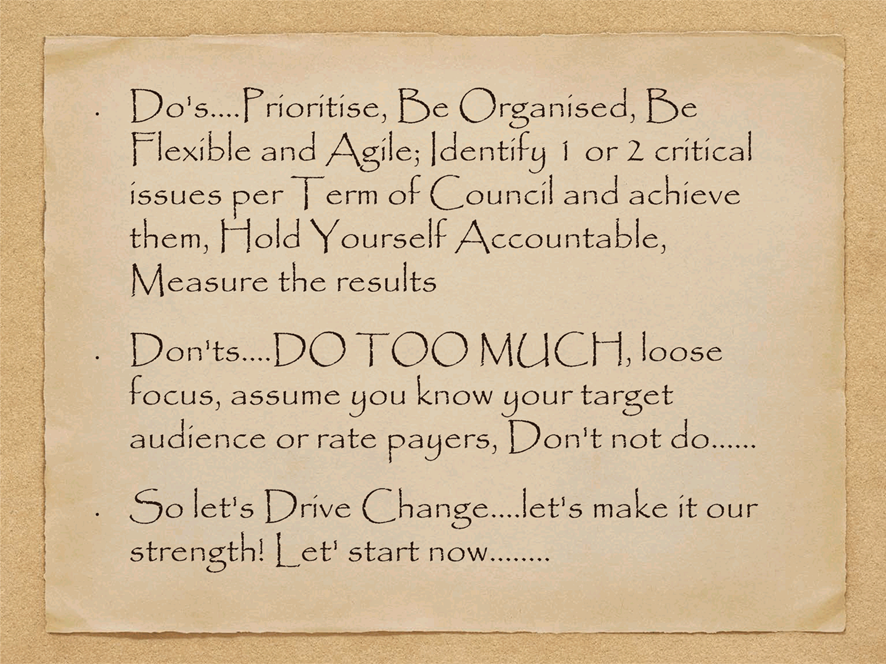 · Do's....Prioritise, Be Organised, Be
Flexible and Agile; Identify 1 or 2 critical
issues per Term of Council and achieve
them, Hold Yourself Accountable,
Measure the results
· Don'ts....DO TOO MUCH, loose
focus, assume you know your target
audience or rate payers, Don't not do......
· So let's Drive Change....let's make it our
strength! Let' start now........